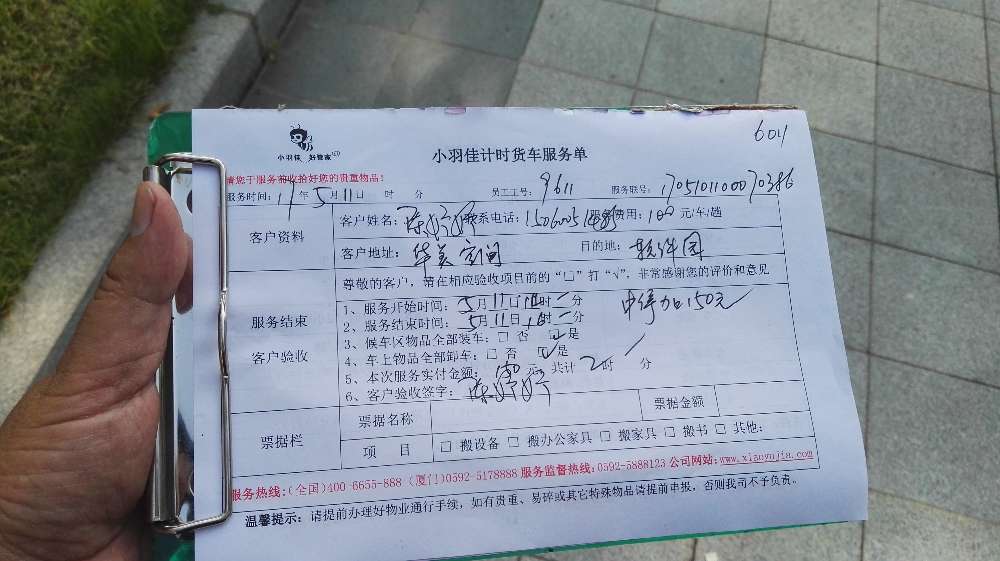 604
小羽佳 好管家
小羽佳计时货车服务单
请您于服务前收拾好您的贵重物品！
服务时间：17年5月11日 时 分 员工工号：9611 服务联号：1705101100070386
客户资料 客户姓名：陈婷婷 联系电话： 服务费用：100 元/车/趟
客户地址：华美空间 目的地：软件园
尊敬的客户，请在相应验收项目前的“□”打“√”，非常感谢您的评价和意见
服务结束
客户验收
1、服务开始时间：5月11日 时 分
2、服务结束时间：5月11日16时 分
3、候车区物品全部装车：□ 否 ☑是
4、车上物品全部卸车：□ 否 ☑是
5、本次服务实付金额： 元，共计 2时 分
6、客户验收签字：陈婷婷
150元
票据栏 票据名称 票据金额
项 目 □ 搬设备 □ 搬办公家具 □ 搬家具 □ 搬书 □ 其他：
服务热线：(全国)400-6655-888 (厦门)0592-5178888 服务监督热线：0592-5888123 公司网站：www.xiaoyujia.com
温馨提示：请提前办理好物业通行手续，如有贵重、易碎或其它特殊物品请提前申报，否则我司不予负责。